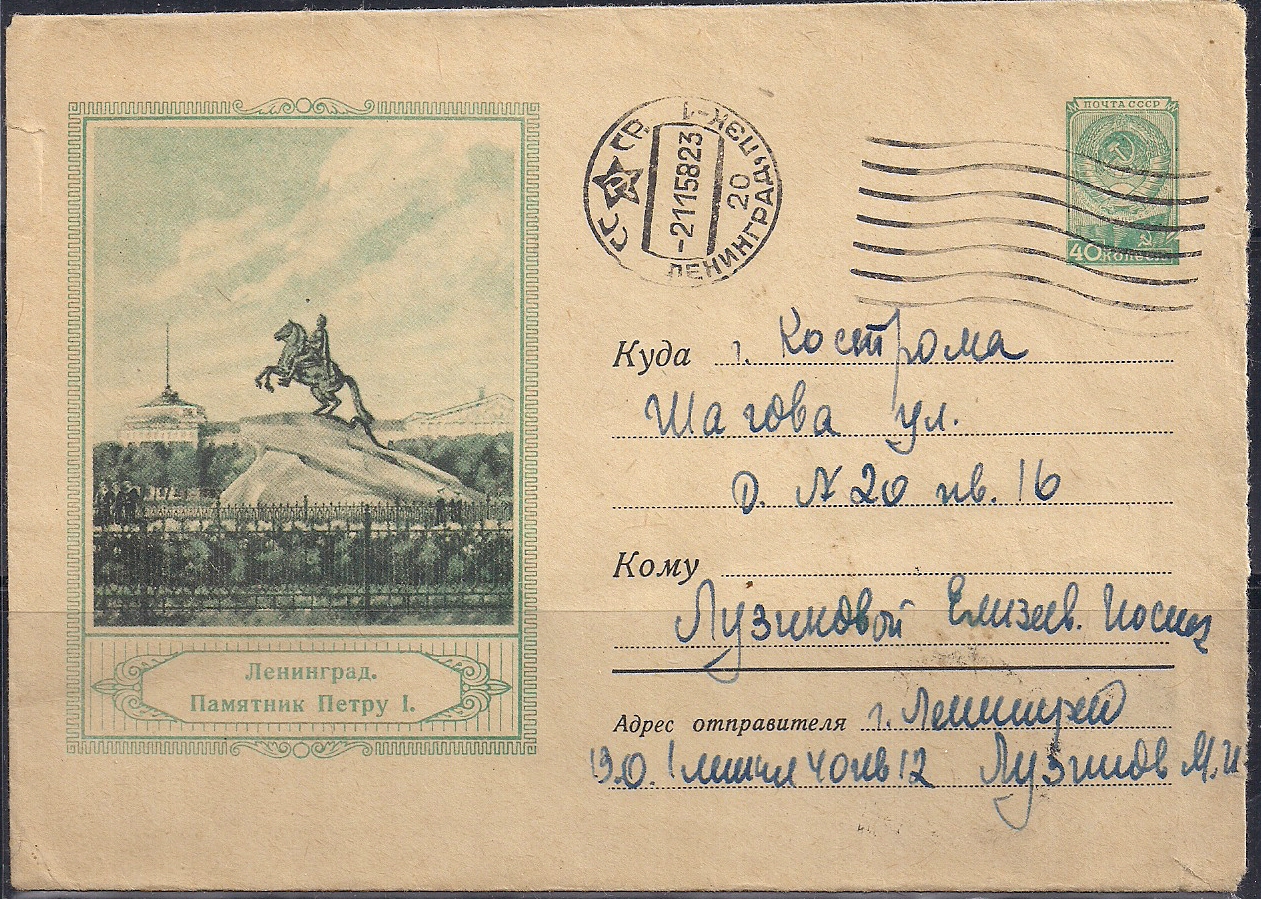 ПОЧТА СССР
40 КОПЕЕК
СССР
ЛЕНИНГРАД
20
-21158 23
Куда г. Кострома
Шагова ул.
д. № 20 кв. 16
Кому
Лузиновой Елизав.
Адрес отправителя г. Ленинград
В.О. 1 линия 40 кв 12 Лузинов М.И
Ленинград.
Памятник Петру I.